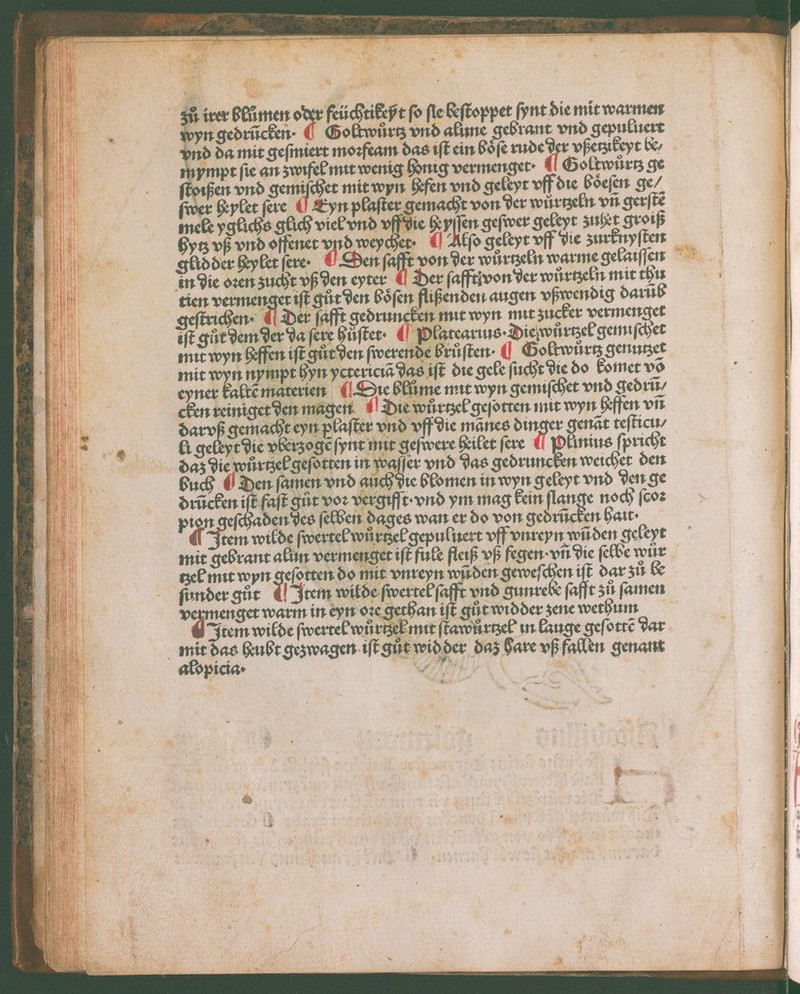 zů irer blůmen oder feüchtikeyt so sie bestoppet synt die mit warmen
wyn gedrücken· ¶ Goltwůrtz vnd alune gebrant vnd gepuluert
vnd da mit gesmiert morfeam das ist ein bőse rude der vßetzikeyt be⸗
nympt sie an zwifel mit wenig honig vermenget· ¶ Goltwůrtz ge
stoißen vnd gemischet mit wyn hefen vnd geleyt vff die bőesen ge/
swer heylet sere ¶ Eyn plaster gemacht von der wůrtzeln vn̄ gerstē
mele yglichs glich viel vnd vff die heyssen geswer geleyt zuhet groiß
hytz vß vnd offenet vnd weychet· ¶ Also geleyt vff die zurknysten
glidder heylet sere· ¶ Den safft von der wůrtzeln warme gelaissen
in die oren zucht vß den eyter ¶ Der safft von der wůrtzeln mit thu
tien vermenget ist gůt den bősen flißenden augen vßwendig darūb
gestrichen· ¶ Der safft gedruncken mit wyn mit zucker vermenget
ist gůt dem der da sere hůstet· ¶ Platearius· Die wůrtzel gemischet
mit wyn heffen ist gůt den swerende brůsten· ¶ Goltwůrtz genutzet
mit wyn nympt hyn yctericiā das ist die gele sucht die do komet vō
eyner kaltē materien ¶ Die blůme mit wyn gemischet vnd gedrū/
cken reiniget den magen ¶ Die wůrtzel gesotten mit wyn heffen vn̄
darvß gemacht eyn plaster vnd vff die mānes dinger genāt testicu/
li geleyt die vberzogē synt mit geswere heilet sere ¶ Plinius spricht
daz die wůrtzel gesotten in wasser vnd das gedruncken weichet den
buch ¶ Den samen vnd auch die blomen in wyn geleyt vnd den ge
drücken ist fast gůt vor vergifft· vnd ym mag kein slange noch scor
pion geschaden des selben dages wan er do von gedrücken hait·
¶ Item wilde swertel wůrtzel gepuluert vff vnreyn wūden geleyt
mit gebrant alun vermenget ist fule fleiß vß fegen· vn̄ die selbe wür
tzel mit wyn gesotten do mit vnreyn wūden geweschen ist dar zů be
sunder gůt ¶ Item wilde swertel safft vnd gunrebe safft zů samen
vermenget warm in eyn ore gethan ist gůt widder zene wethum
¶ Item wilde swertel wůrtzel mit stawůrtzel in lauge gesottē dar
mit das heubt gezwagen ist gůt widder daz hare vß fallen genant
alopicia·